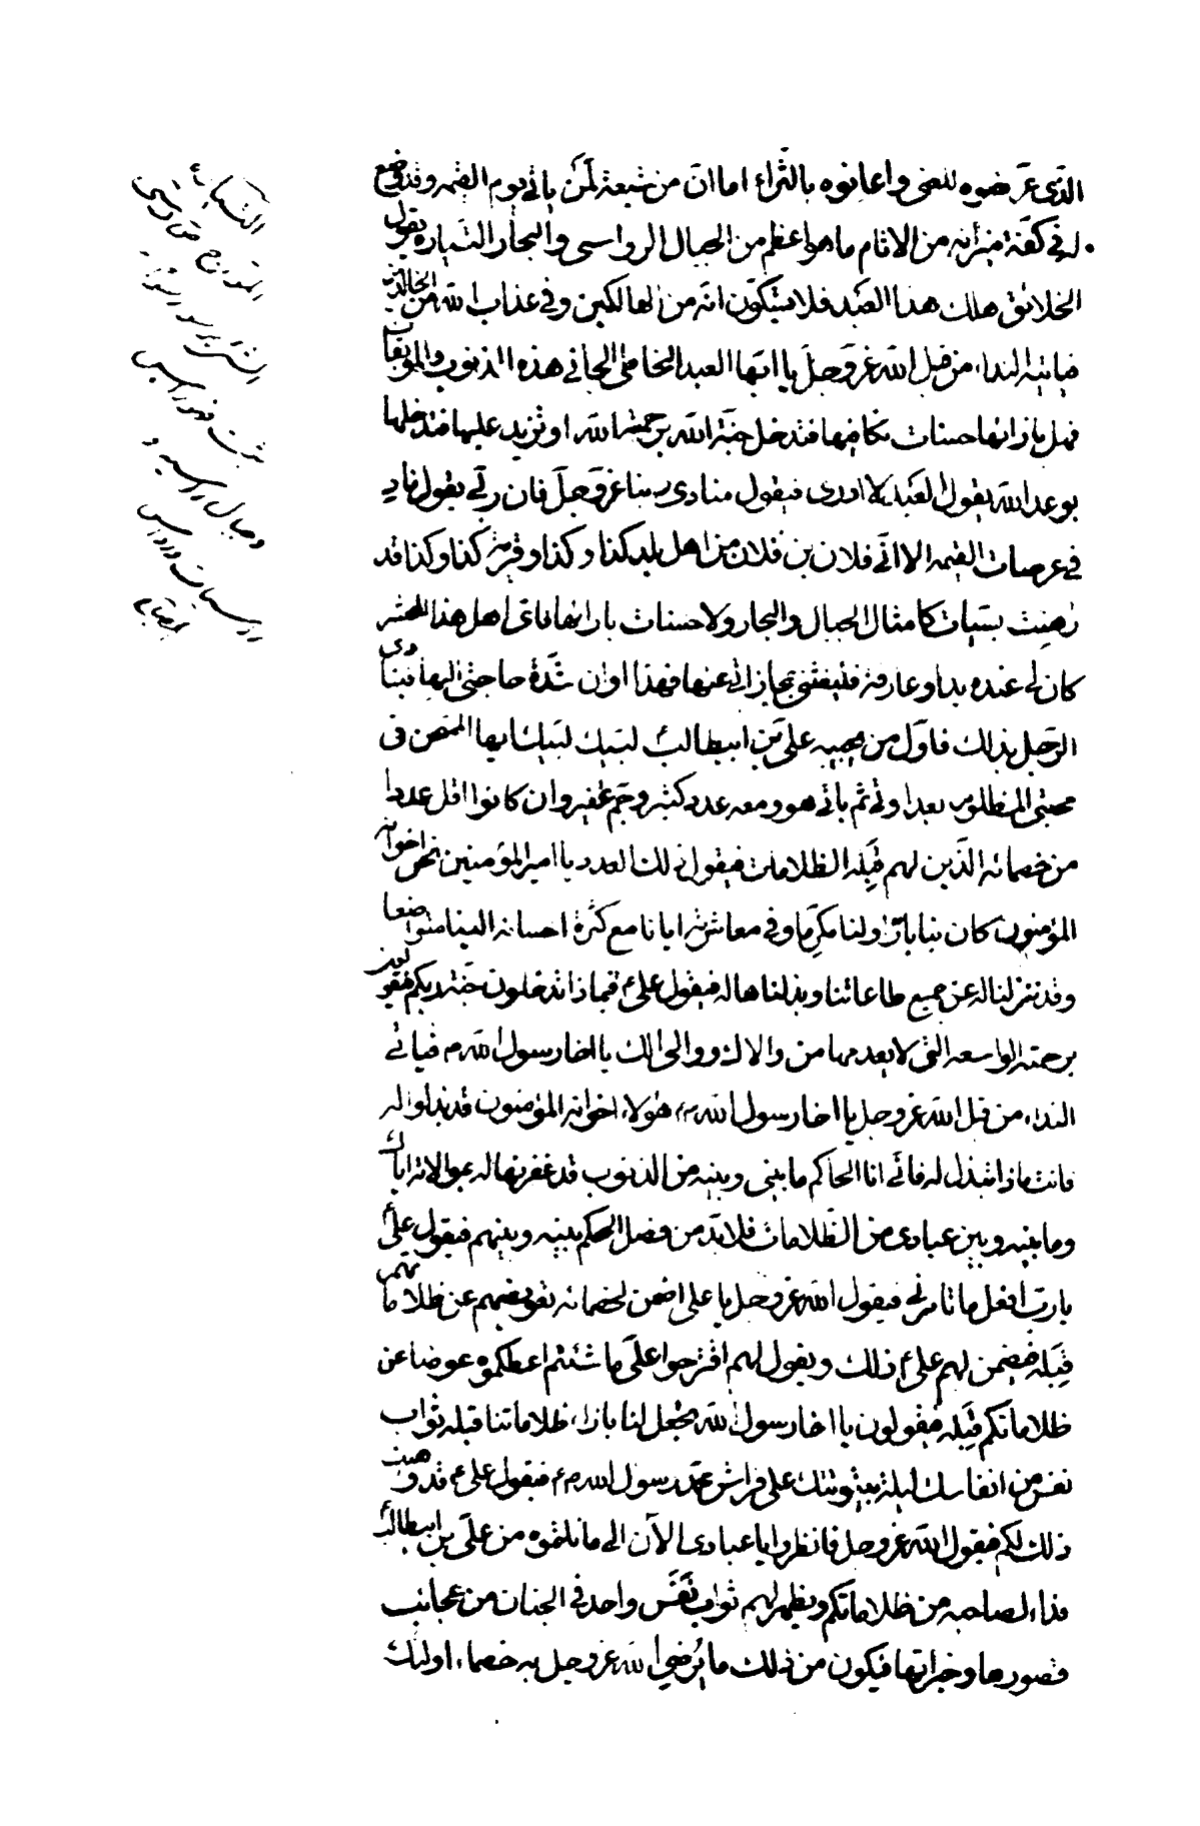 الذی عرضوه للغنی واعانوه بالثراء اما ان من شیعة لمن یاتی یوم القیمه وقد وضع
له فی کفة میزانه من الاثام ما هو اعظم من الجبال الرواسی والبحار التیاره یقول
الخلائق هلك هذا العبد فلا یشکون انه من الهالکین وفی عذاب الله من الخالدین
فیاتیه النداء من قبل الله عز وجل یا ایها العبد الخاطی الجانی هذه الذنوب والموبقات
فهل بازائها حسنات تکافیها فتدخل جنة الله برحمة الله او تزید علیها فتدخلها
بوعد الله یقول العبد لا ادری فیقول منادی ربنا عز وجل فان ربی یقول ناد
فی عرصات القیمه الا انی فلان بن فلان من اهل بلد کذا وکذا وقریة کذا وکذا قد
رهنت بسیات کامثال الجبال والبحار ولا حسنات بازائها فای اهل هذا المحشر
کان لی عنده ید او عارفة فلیغثنی بمجازاتی عنها فهذا اوان شدة حاجتی الیها فینادی
الرجل بذلك فاول من یجیبه علی بن ابیطالبؑ لبیك لبیك ایها الممتحن فی
محبتی المظلوم بعداوتی ثم یاتی هو ومعه عدد کثیر وجم غفیر وان کانوا اقل عددا
من خصمائه الذین لهم قبله الظلامات فیقول ذلك العدد یا امیر المؤمنین نحن اخوانه
المؤمنون کان بنا بارا ولنا مکرما وفی معاشرته ایانا مع کثرة احسانه الینا متواضعا
وقد نزلنا له عن جمیع طاعاتنا وبذلناها له فیقول علیؑ فبماذا تدخلون جنة ربکم فیقولون
برحمته الواسعه التی لا یعدمها من والاك ووالی الك یا اخا رسول اللهؐ فیاتی
النداء من قبل الله عز وجل یا اخا رسول اللهؐ هؤلاء اخوانه المؤمنون قد بذلوا له
فانت ماذا تبذل له فانی انا الحاکم ما بینی وبینه من الذنوب قد غفرتها له بموالاته ایاك
وما بینه وبین عبادی من الظلامات فلا بد من فصل الحکم بینه وبینهم فیقول علیؑ
یا رب افعل ما تامرنی فیقول الله عز وجل یا علی اضمن لخصمائه تعویضهم عن ظلاماتهم
قبله فیضمن لهم علیؑ ذلك ویقول لهم اقترحوا علی ما شئتم اعطکموه عوضا عن
ظلاماتکم قبله فیقولون یا اخا رسول الله تجعل لنا بازاء ظلاماتنا قبله ثواب
نفس من انفاسك لیلة بیتوتتك علی فراش محمد رسول اللهؐ فیقول علیؑ قد وهبت
ذلك لکم فیقول الله عز وجل فانظروا یا عبادی الآن الی ما نلتموه من علی بن ابیطالبؑ
فداء لصاحبه من ظلاماتکم ویظهر لهم ثواب نفس واحد فی الجنان من عجائب
قصورها وخیراتها فیکون من ذلك ما یرضی الله عز وجل به خصماء اولئك